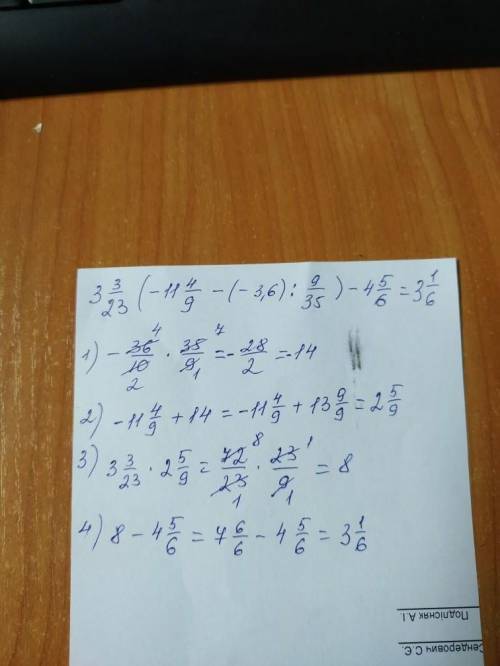 3 3/23 (-11 4/9 - (-3,6) : 9/35) - 4 5/6 = 3 1/6
1) - 36/10 · 35/9 = - 28/2 = -14
4 7
2 1
2) -11 4/9 + 14 = -11 4/9 + 13 9/9 = 2 5/9
3) 3 3/23 · 2 5/9 = 72/23 · 23/9 = 8
8 1
1 1
4) 8 - 4 5/6 = 7 6/6 - 4 5/6 = 3 1/6
Підлісняк А.І.
Сендерович С.Є.